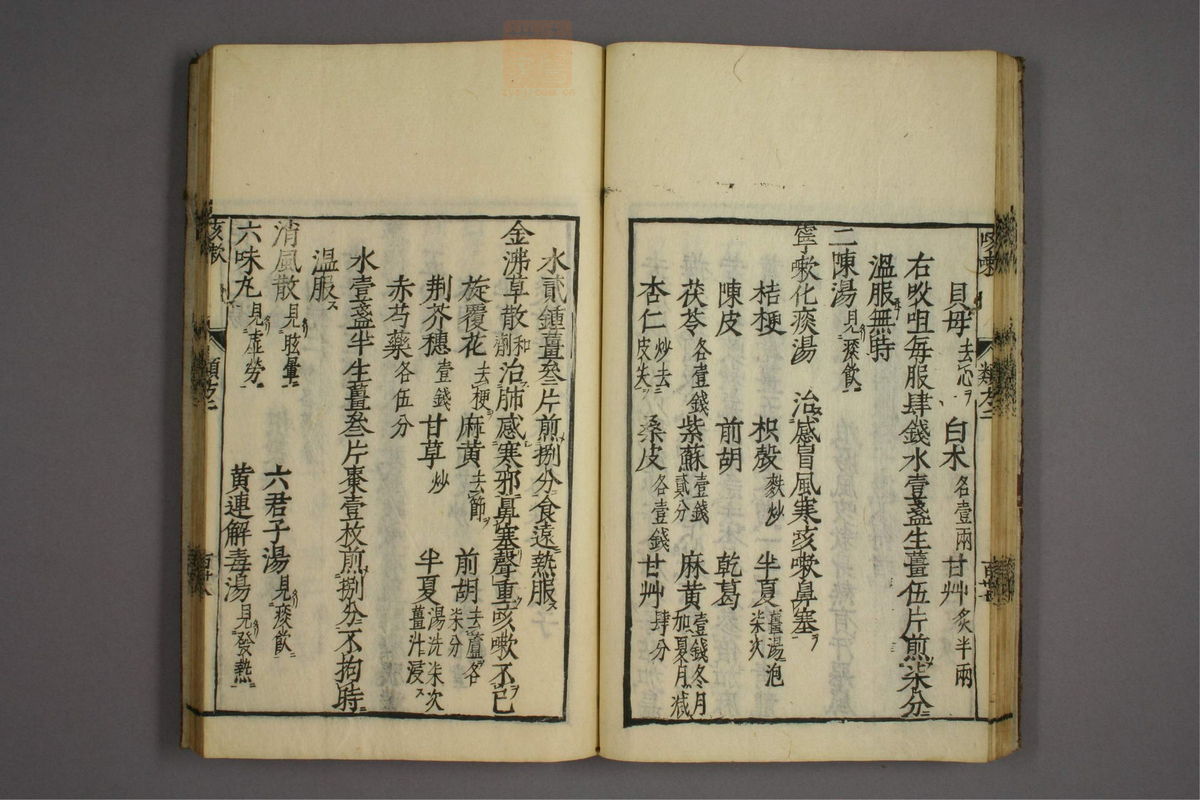 貝母去心 白朮各壹兩 甘艸炙半兩
右㕮咀每服肆錢水壹盞生薑伍片煎柒分
溫服無時
二陳湯見痰飲
寧嗽化痰湯 治感冒風寒咳嗽鼻塞
桔梗 枳殼麩炒 半夏薑湯泡柒次
陳皮 前胡 乾葛
茯苓各壹錢 紫蘇壹錢貳分 麻黃壹錢冬月加夏月減
杏仁炒去皮尖 桑皮各壹錢 甘艸肆分
水貳鍾薑叄片煎捌分食遠熱服
金沸草散和劑治肺感寒邪鼻塞聲重咳嗽不已
旋覆花去梗 麻黃去節 前胡去蘆各柒分
荆芥穗壹錢 甘草炒 半夏湯洗柒次薑汁浸
赤芍藥各伍分
水壹盞半生薑叄片棗壹枚煎捌分不拘時
溫服
消風散見眩暈 六君子湯見痰飲
六味丸見虛勞 黃連解毒湯見發熱
咳嗽 類方二